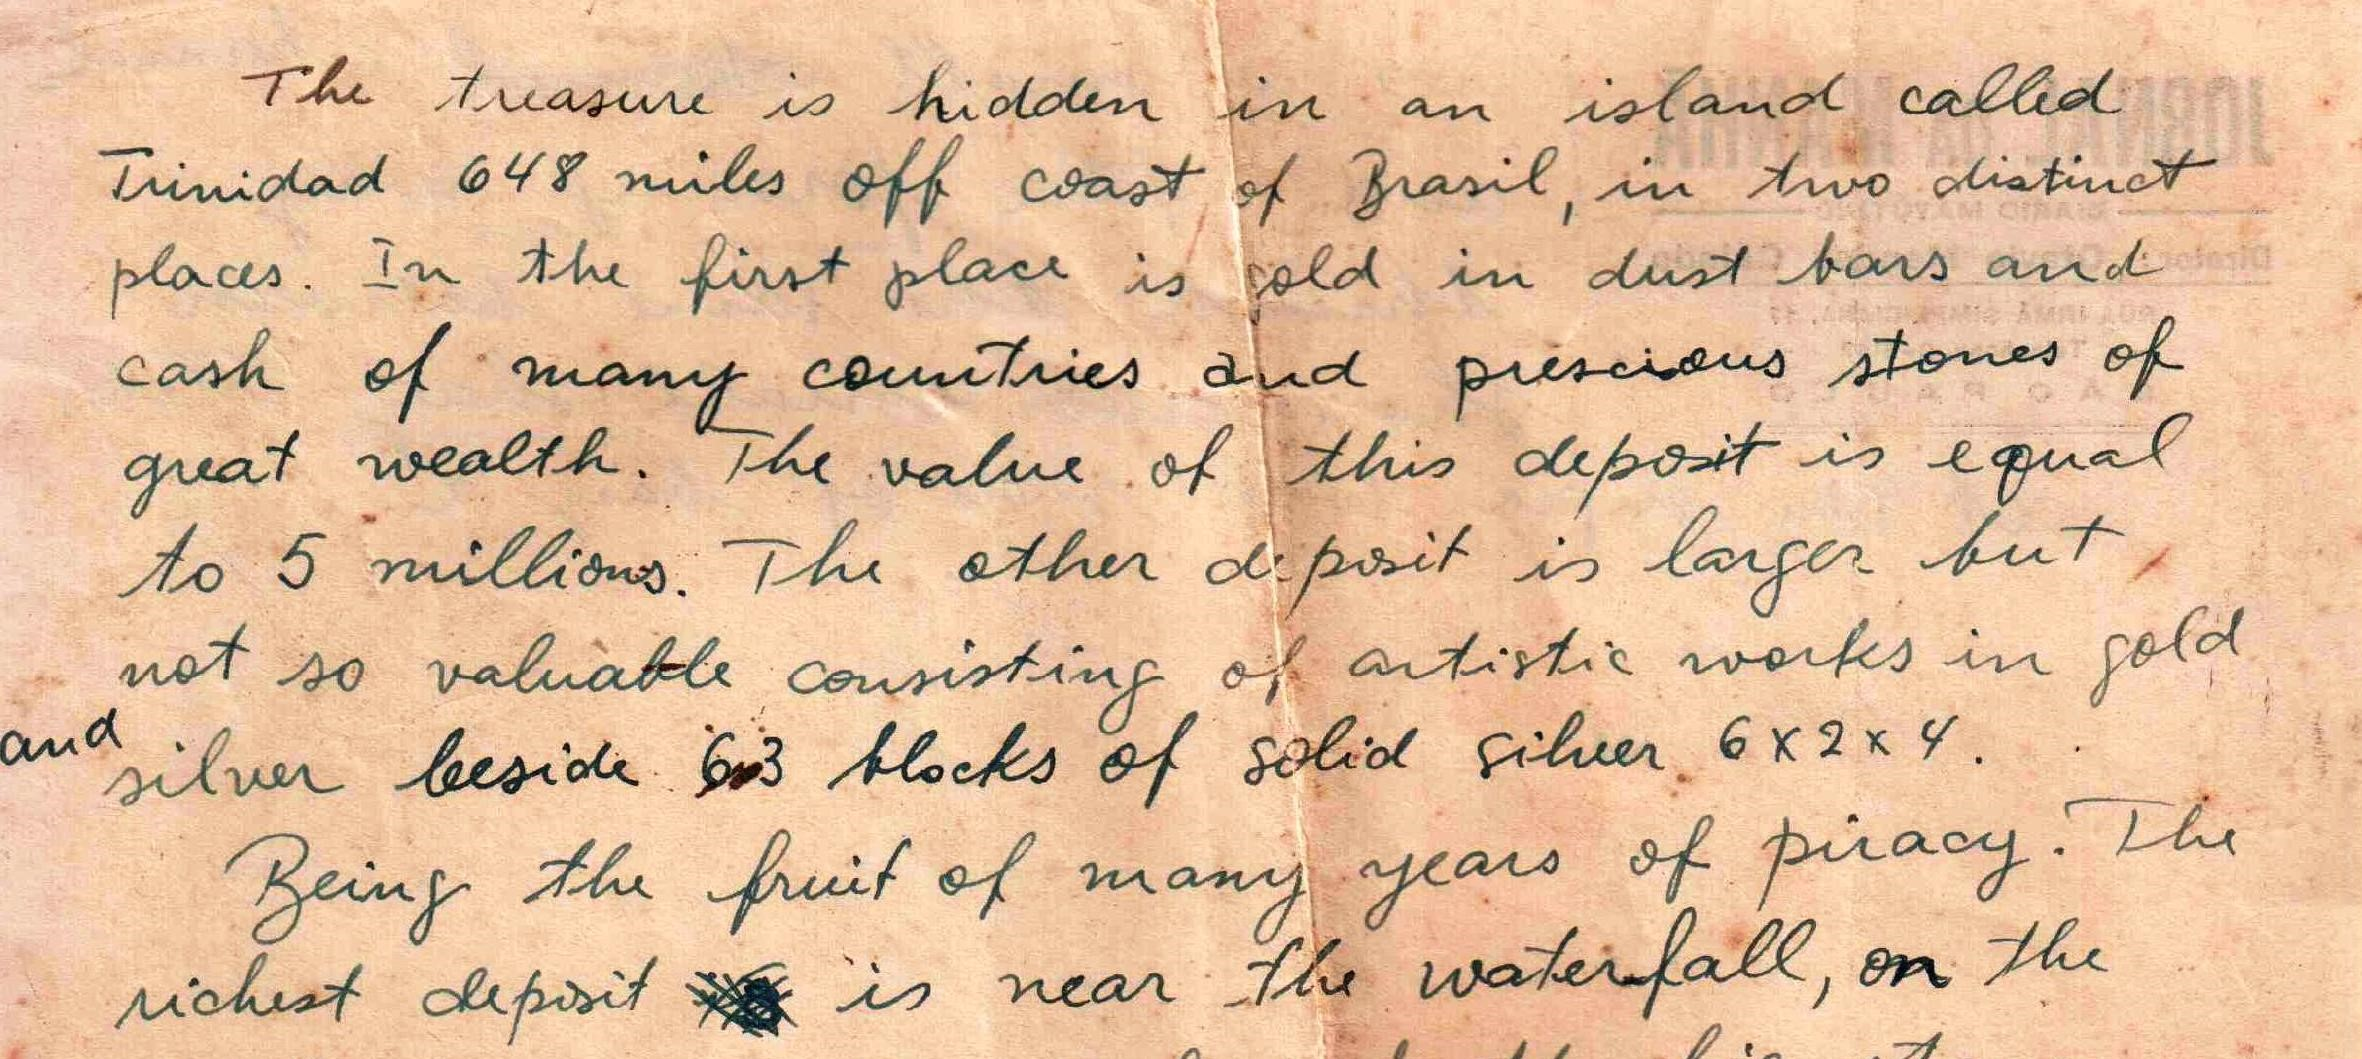 The treasure is hidden in an island called
Trinidad 648 miles off coast of Brasil, in two distinct
places. In the first place is gold in dust bars and
cash of many countries and prescious stones of
great wealth. The value of this deposit is equal
to 5 millions. The other deposit is larger but
not so valuable consisting of artistic works in gold
and
silver beside 63 blocks of solid silver 6x2x4.
Being the fruit of many years of piracy. The
richest deposit is near the waterfall, on the